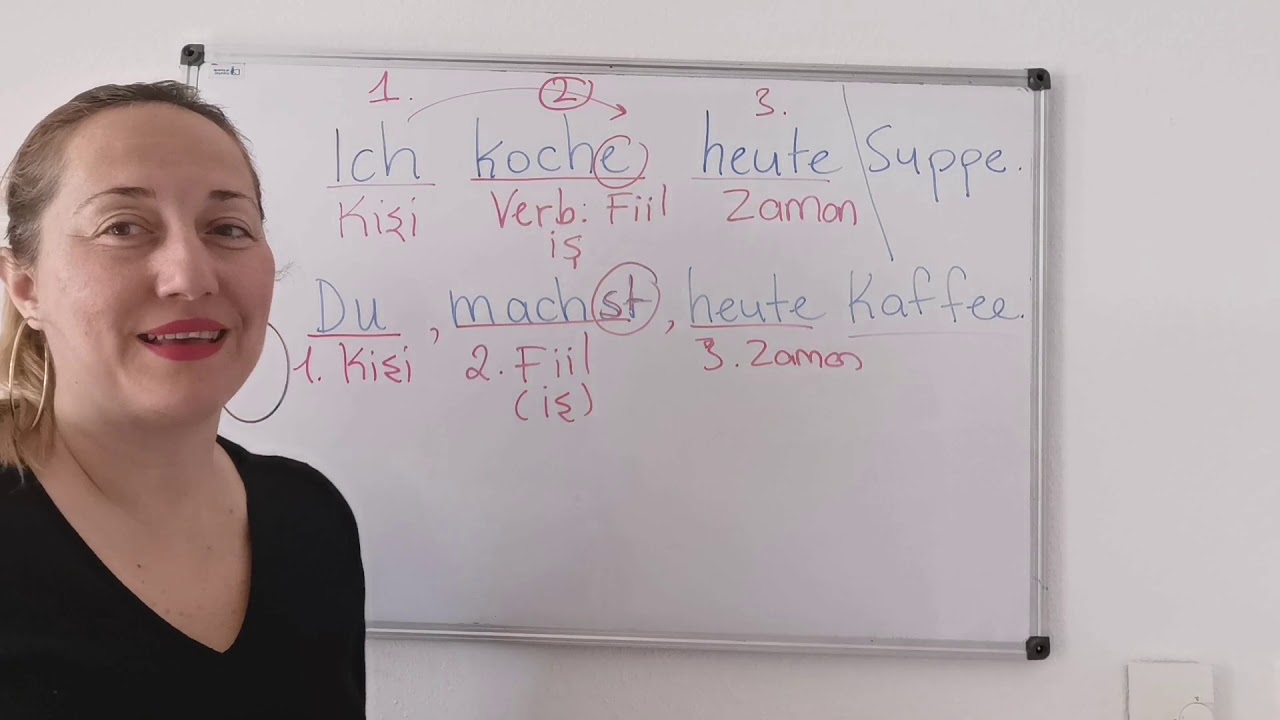 1. 2 3.
Ich koche heute Suppe.
Kişi Verb: Fiil Zamon
iş
Du, machst, heute Kaffee.
1. Kişi 2. Fiil 3. Zamon
(iş)